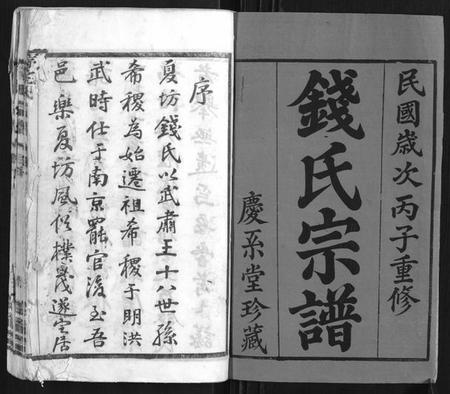 民國歲次丙子重修
錢氏宗譜
慶系堂珍藏
序
夏坊錢氏以武肅王十八世孫
希稷為始遷祖希稷于明洪
武時仕于南京罷官後至吾
邑樂夏坊風俗樸遂家居